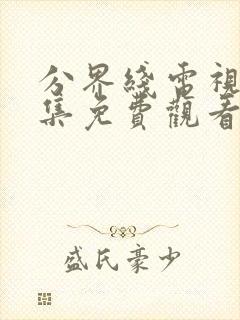 分界綫電視
集免費觀看
盛氏豪少